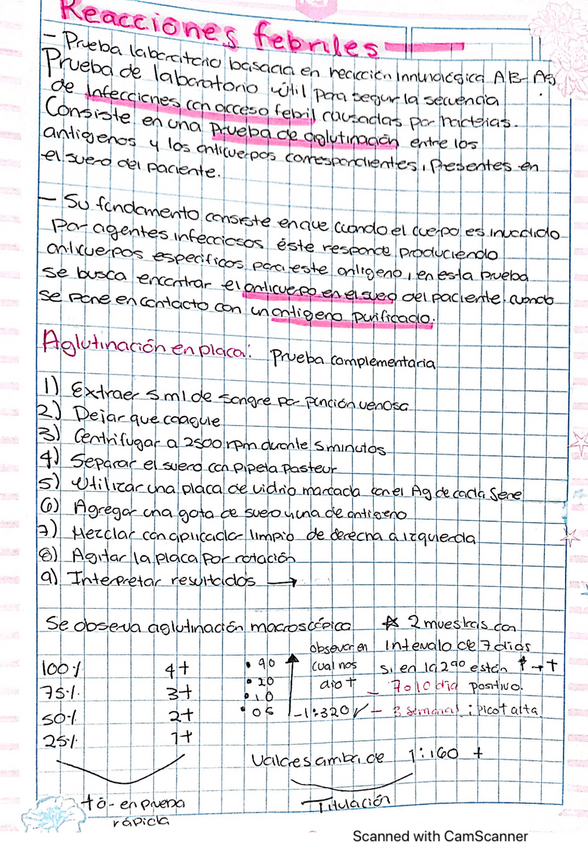 Reacciones febriles
- Prueba laboratorio basada en reacción Innunológica AB-Ag
Prueba de laboratorio útil para seguir la secuencia
de Infecciones con acceso febril causadas por bacterias.
Consiste en una prueba de aglutinación entre los
antígenos y los anticuerpos correspondientes, presentes en
el suero del paciente.
- Su fundamento consiste en que cuando el cuerpo es invadido
por agentes infecciosos éste responde produciendo
anticuerpos específicos para este antígeno, en esta prueba
se busca encontrar el anticuerpo en el suero del paciente cuando
se pone en contacto con un antígeno purificado.
Aglutinación en placa: Prueba complementaria
1) Extraer 5 ml de sangre por punción venosa
2) Dejar que coagule
3) Centrifugar a 2500 rpm durante 5 minutos
4) Separar el suero con pipeta pasteur
5) Utilizar una placa de vidrio marcada con el Ag de cada serie
6) Agregar una gota de suero y una de antígeno
7) Mezclar con aplicador limpio de derecha a izquierda
8) Agitar la placa por rotación
9) Interpretar resultados →
Se observa aglutinación macroscópica
100% 4+
75% 3+
50% 2+
25% 1+
+ ó - en prueba
rápida
observar en
cual nos
dio +
• 40
• 20
• 10
• 05
-1:320 ✓
* 2 muestras con
Intervalo de 7 días
si en la 2da están ↑ → +
- 7 o 10 día positivo.
- 3 semana ; pico + alta
Valores arriba de 1:160 +
Titulación
Scanned with CamScanner